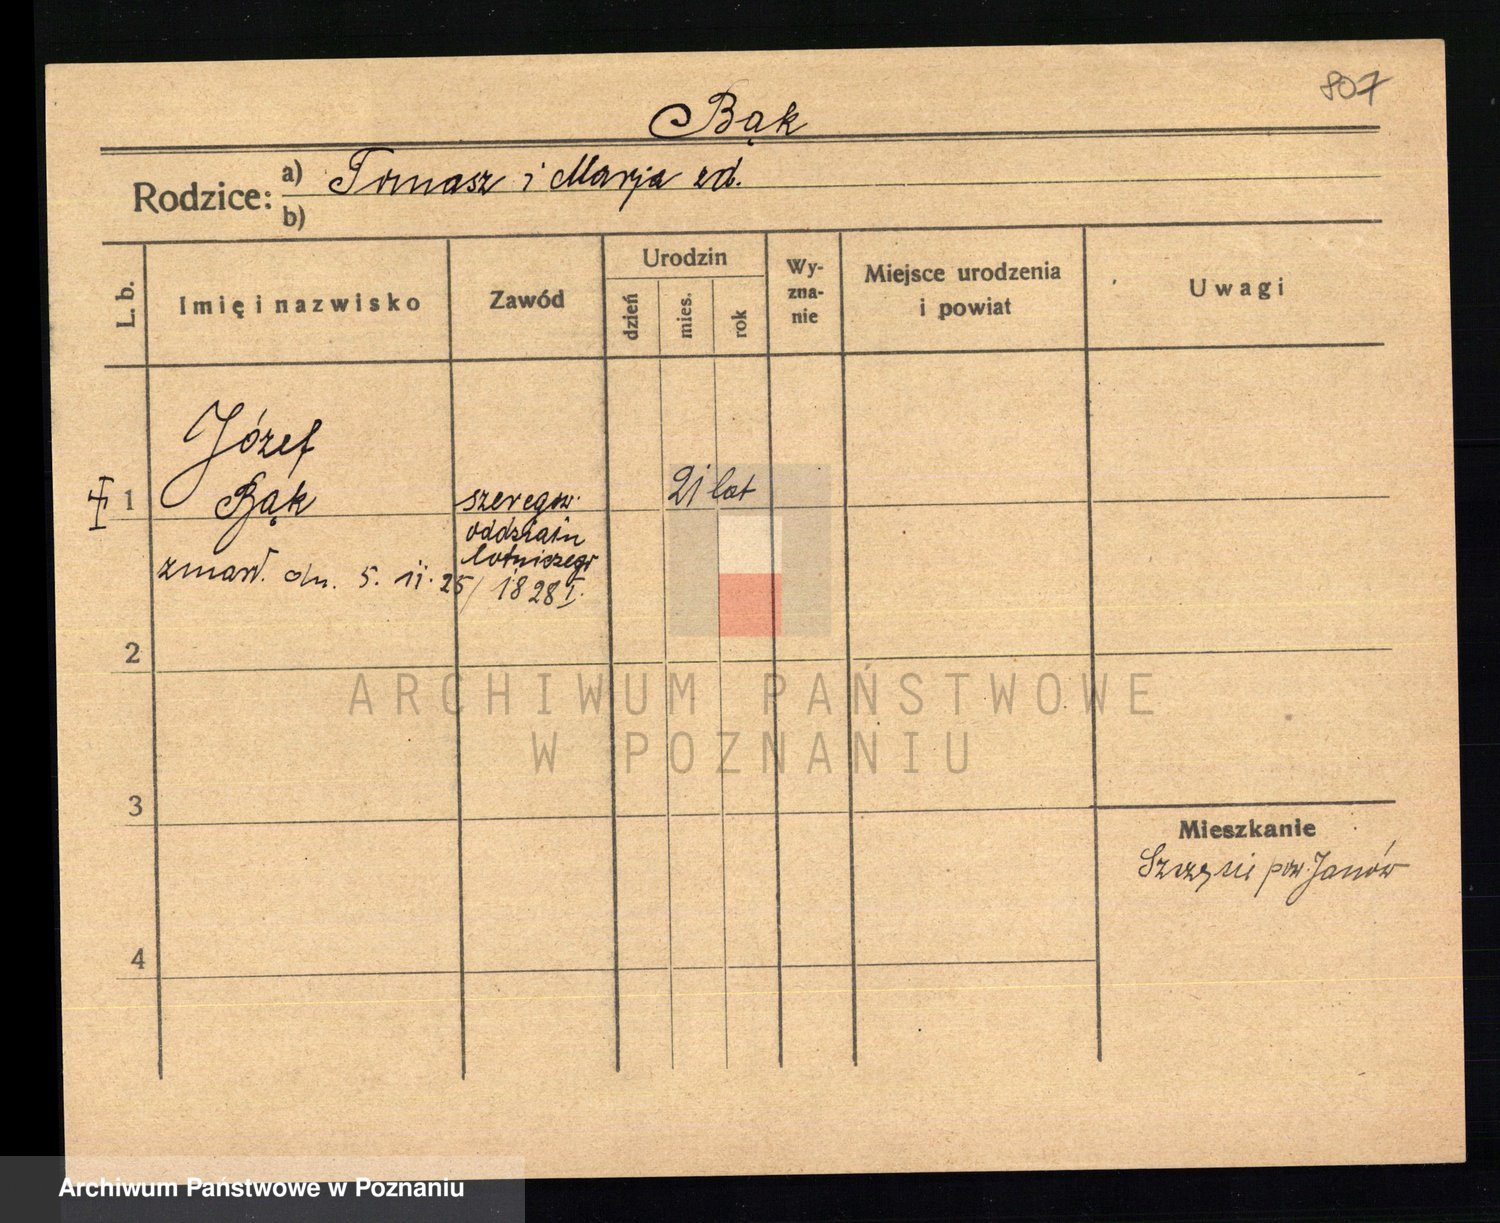 807
Bąk
Rodzice: a) Tomasz i Marja zd.
b)
L. b.
Imię i nazwisko
Zawód
Urodzin
dzień
mies.
rok
Wy-
zna-
nie
Miejsce urodzenia
i powiat
Uwagi
Józef
1 Bąk
szeregow.
21 lat
oddziału
lotniczego
zmarł. dn. 5. 11. 25/1828 I.
2
ARCHIWUM PAŃSTWOWE
W POZNANIU
3
Mieszkanie
pow. Janów
4
Archiwum Państwowe w Poznaniu